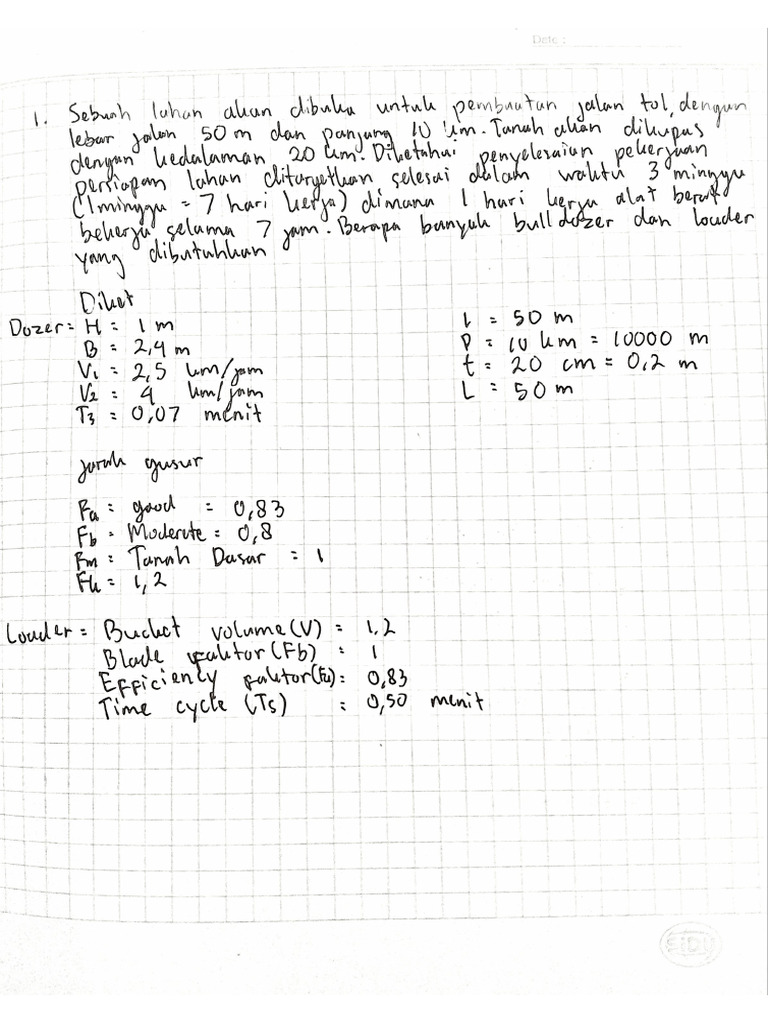 Date :
1. Sebuah lahan akan dibuka untuk pembuatan jalan tol, dengan
lebar jalan 50 m dan panjang 10 km. Tanah akan dikupas
dengan kedalaman 20 km. Diketahui penyelesaian pekerjaan
persiapan lahan ditargetkan selesai dalam waktu 3 minggu
(1 minggu = 7 hari kerja) dimana 1 hari kerja alat berat
bekerja selama 7 jam. Berapa banyak bulldozer dan louder
yang dibutuhkan
Diket
Dozer = H = 1 m
B = 2,4 m
V1 = 2,5 km/jam
V2 = 4 km/jam
T3 = 0,07 menit
l = 50 m
P = 10 km = 10000 m
t = 20 cm = 0,2 m
L = 50 m
jarak gusur
Fa = good = 0,83
Fb = Moderate = 0,8
Fm = Tanah Dasar = 1
Fk = 1,2
Louder = Bucket volume (V) = 1,2
Blade faktor (Fb) = 1
Efficiency faktor (Fa) = 0,83
Time cycle (Ts) = 0,50 menit
SIDU